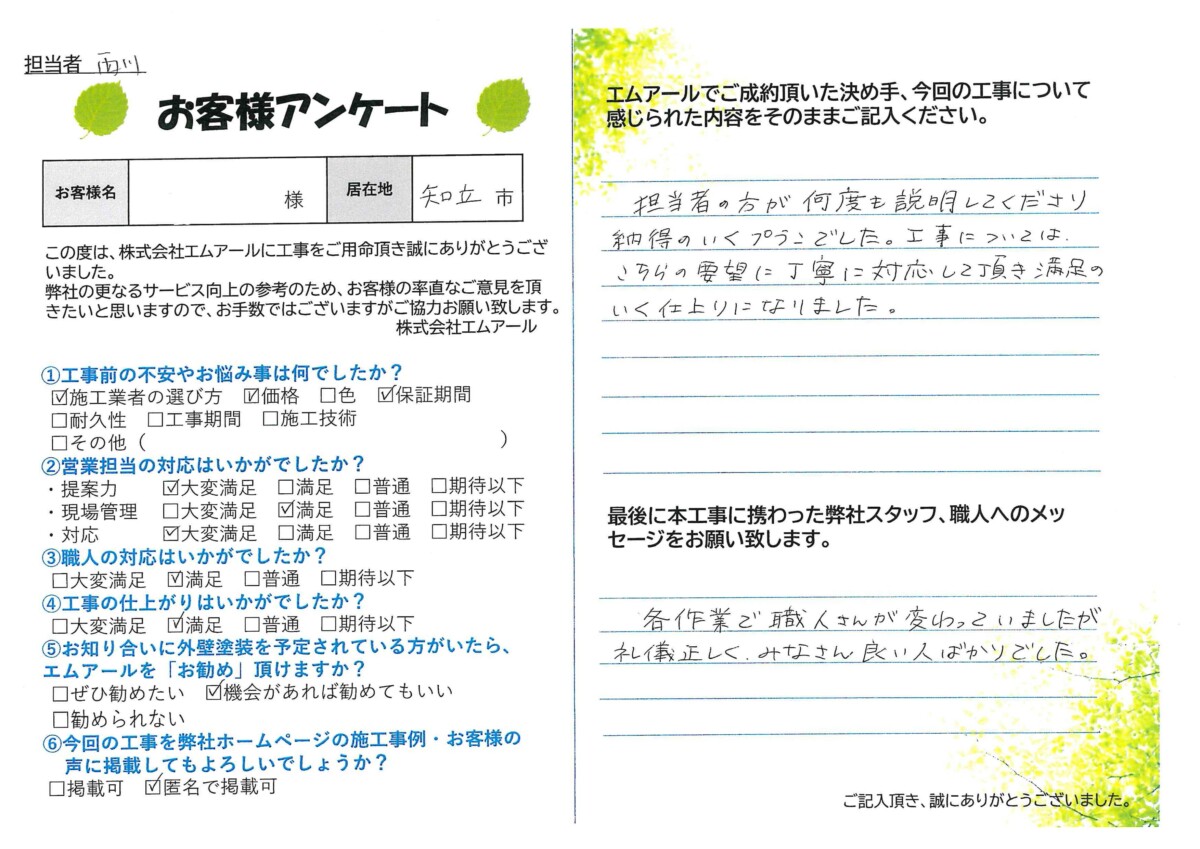 担当者 西川
お客様アンケート
お客様名 様 居在地 知立 市
この度は、株式会社エムアールに工事をご用命頂き誠にありがとうござ
いました。
弊社の更なるサービス向上の参考のため、お客様の率直なご意見を頂
きたいと思いますので、お手数ではございますがご協力お願い致します。
株式会社エムアール
①工事前の不安やお悩み事は何でしたか？
☑施工業者の選び方 ☑価格 □色 ☑保証期間
□耐久性 □工事期間 □施工技術
□その他（ ）
②営業担当の対応はいかがでしたか？
・提案力 ☑大変満足 □満足 □普通 □期待以下
・現場管理 □大変満足 ☑満足 □普通 □期待以下
・対応 ☑大変満足 □満足 □普通 □期待以下
③職人の対応はいかがでしたか？
□大変満足 ☑満足 □普通 □期待以下
④工事の仕上がりはいかがでしたか？
□大変満足 ☑満足 □普通 □期待以下
⑤お知り合いに外壁塗装を予定されている方がいたら、
エムアールを「お勧め」頂けますか？
□ぜひ勧めたい ☑機会があれば勧めてもいい
□勧められない
⑥今回の工事を弊社ホームページの施工事例・お客様の
声に掲載してもよろしいでしょうか？
□掲載可 ☑匿名で掲載可
エムアールでご成約頂いた決め手、今回の工事について
感じられた内容をそのままご記入ください。
担当者の方が何度も説明してくださり
納得のいくプランでした。工事については、
こちらの要望に丁寧に対応して頂き満足の
いく仕上りになりました。
最後に本工事に携わった弊社スタッフ、職人へのメッ
セージをお願い致します。
各作業で職人さんが変わっていましたが
礼儀正しく、みなさん良い人ばかりでした。
ご記入頂き、誠にありがとうございました。